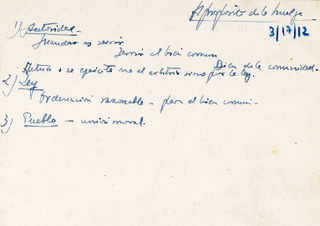 A propósito de la huelga
3/17/12
1) Autoridad.
Mandar es servir
Servir al bien común
Bien de la comunidad.
Actúa o se ejercita no al arbitrio sino por la ley.
2) Ley
Ordenación razonable - para el bien común.
3) Pueblo - unión moral.